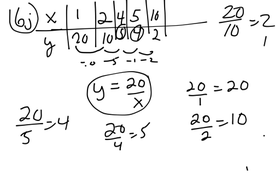 6j) x | 1 | 2 | 4 | 5 | 10
y | 20 | 10 | 5 | 4 | 2
20/10 = 2
-10 -5 -1 -2
y = 20/x
20/1 = 20
20/5 = 4
20/4 = 5
20/2 = 10